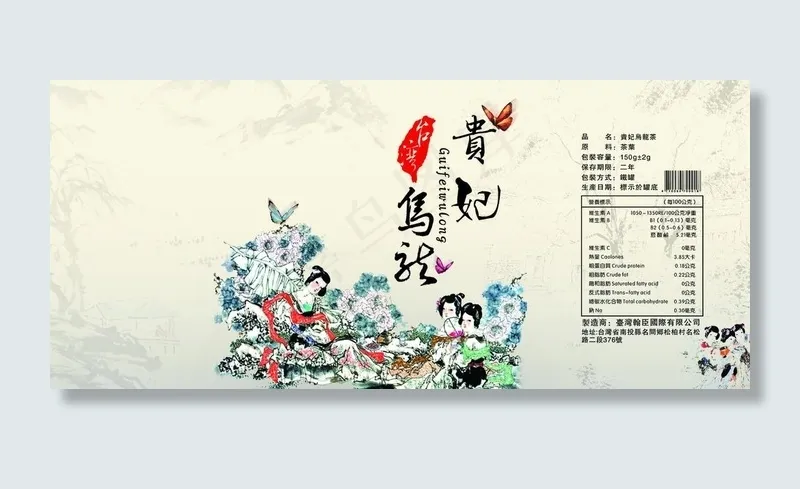 台灣
貴妃
烏龍
Guifeiwulong
品 名：貴妃烏龍茶
原 料：茶葉
包裝容量：150g±2g
保存期限：二年
包裝方式：鐵罐
生產日期：標示於罐底
營養標示 （每100公克）
維生素 A 1050-1350RE/100公克凈重
維生素 B B1（0.1-0.13）毫克
B2（0.5-0.6）毫克
菸醯鹼 5.21毫克
維生素 C 0毫克
熱量 Caolories 3.85大卡
粗蛋白質 Crude protein 0.18公克
粗脂肪 Crude fat 0.22公克
飽和脂肪 Saturated fatty acid 0公克
反式脂肪 Trans-fatty acid 0公克
總碳水化合物 Total carbohydrate 0.39公克
鈉 Na 0.30毫克
製造商：臺灣翰臣國際有限公司
地址:台灣省南投縣名間鄉松柏村名松
路二段376號